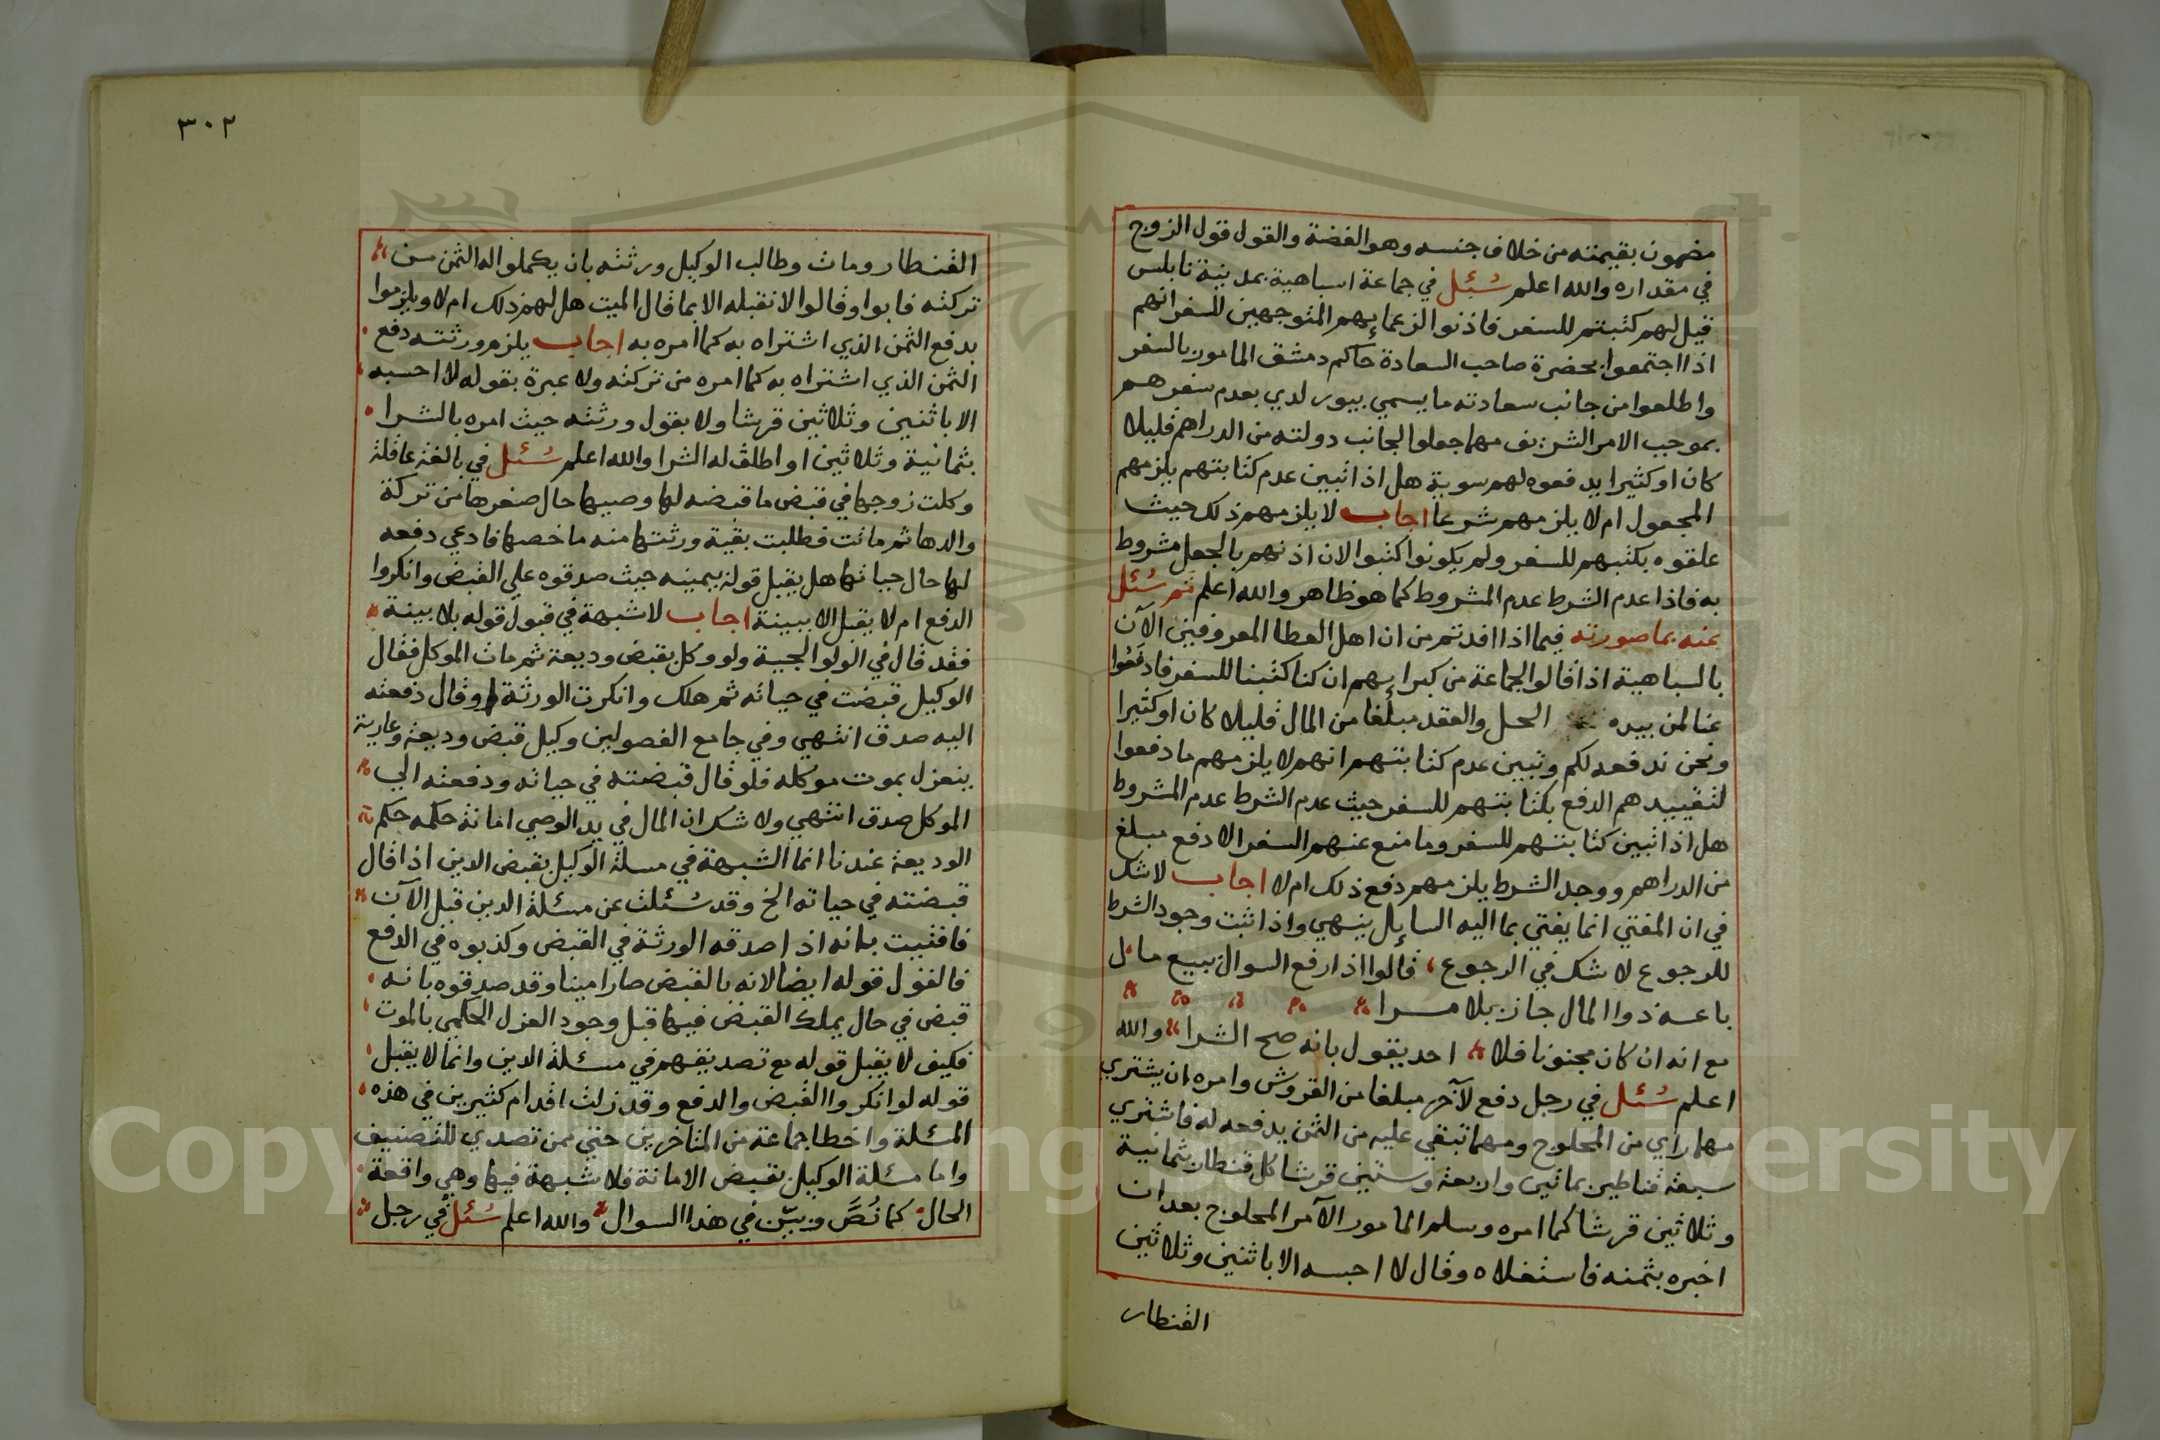 مضمون بقيمته من خلاف جنسه وهو الفضة والقول قول الزوج
في مقداره والله اعلم سُئل في جماعة اسباهية بمدينة نابلس
قيل لهم كتبتم للسفر فاذنوا لزعمايهم المتوجهين للسفر انهم
اذا اجتمعوا بحضرة صاحب السعادة حاكم دمشق المامور بالسفر
واطلعوا من جانب سعادته ما يسمي بيور لدي بعدم سفرهم
بموجب الامر الشريف مهما جعلوا لجانب دولته من الدراهم قليلا
كان او كثيرا يدفعوه لهم سوية هل اذا تبين عدم كتابتهم يلزمهم
المجعول ام لا يلزمهم شرعا اجاب لا يلزمهم ذلك حيث
علقوه بكتبهم للسفر ولم يكونوا كتبوا لان اذنهم بالجعل مشروط
به فاذا عدم الشرط عدم المشروط كما هو ظاهر والله اعلم ثم سُئل
عنه بما صورته فيما اذا افدتم من ان اهل العطا المعروفين الآن
بالسباهية اذا قالوا الجماعة من كبرايهم ان كنا كتبنا للسفر فادفعوا
عنا لمن بيده الحل والعقد مبلغا من المال قليلا كان او كثيرا
ونحن ندفعه لكم وتبين عدم كتابتهم انهم لا يلزمهم ما دفعوا
لتقييدهم الدفع بكتابتهم للسفر حيث عدم الشرط عدم المشروط
هل اذا تبين كتابتهم للسفر وما منع عنهم السفر الا دفع مبلغ
من الدراهم ووجد الشرط يلزمهم دفع ذلك ام لا اجاب لا شك
في ان المفتي انما يفتي بما اليه السايل ينهي واذا ثبت وجود الشرط
للرجوع لا شك في الرجوع ، قالوا اذا رفع السوال ببيع مال
باعه ذوا المال جاز بلا مرا
مع انه ان كان مجنونا فلا احد يقول بانه صح الشرا والله
اعلم سُئل في رجل دفع لآخر مبلغا من القروش وامره ان يشتري
مهما راي من المحلوج ومهما تبقي عليه من الثمن يدفعه له فاشتري
سبعة قناطير بماتين واربعة وستين قرشا كل قنطار بثمانية
وثلاثين قرشا كما امره وسلم المامور الآمر المحلوج بعد ان
اخبره بثمنه فاستغلاه وقال لا احبسه الا باثنين وثلاثين
القنطار
٣٠٢
القنطار ومات وطالب الوكيل ورثته بان يكملوا له الثمن من
تركته فابوا وقالوا لا نقبله الا بما قال الميت هل لهم ذلك ام لا ويلزموا
بدفع الثمن الذي اشتراه به كما امره به اجاب يلزم ورثته دفع
الثمن الذي اشتراه به كما امره من تركته ولا عبرة بقوله لا احسبه
الا باثنين وثلاثين قرشا ولا بقول ورثته حيث امره بالشرا
بثمانية وثلاثين او اطلق له الشرا والله اعلم سُئل في بالغة عاقلة
وكلت زوجها في قبض ما قبضه لها وصيها حال صغرها من تركة
والدها ثم ماتت فطلبت بقية ورثتها منه ما خصها فادعي دفعه
لها حال حياتها هل يقبل قوله بيمينه حيث صدقوه علي القبض وانكروا
الدفع ام لا يقبل الا ببينة اجاب لا شبهة في قبول قوله بلا بينة
فقد قال في الولوالجية ولو وكل بقبض وديعة ثم مات الموكل فقال
الوكيل قبضت في حياته ثم هلك وانكرت الورثة او قال دفعته
اليه صدق انتهي وفي جامع الفصولين وكيل قبض وديعة وعارية
ينعزل بموت موكله فلو قال قبضته في حياته ودفعته الي
الموكل صدق انتهي ولا شك ان المال في يد الوصي امانة حكمه حكم
الوديعة عندنا انما الشبهة في مسلة الوكيل بقبض الدين اذا قال
قبضته في حياته الخ وقد سُئلت عن مسئلة الدين قبل الآن
فافتيت بانه اذا صدقه الورثة في القبض وكذبوه في الدفع
فالقول قوله ايضا لانه بالقبض صار امينا وقد صدقوه بانه
قبض في حال يملك القبض فيها قبل وجود العزل الحكمي بالموت
فكيف لا يقبل قوله مع تصديقهم في مسئلة الدين وانما لا يقبل
قوله لو انكروا القبض والدفع وقد زلت اقدام كثيرين في هذه
المسئلة واخطا جماعة من المتاخرين حتي ممن تصدي للتصنيف
واما مسئلة الوكيل بقبض الامانة فلا شبهة فيها وهي واقعة
الحال كما نُصَّ وبيّن في هذا السوال والله اعلم سُئل في رجل